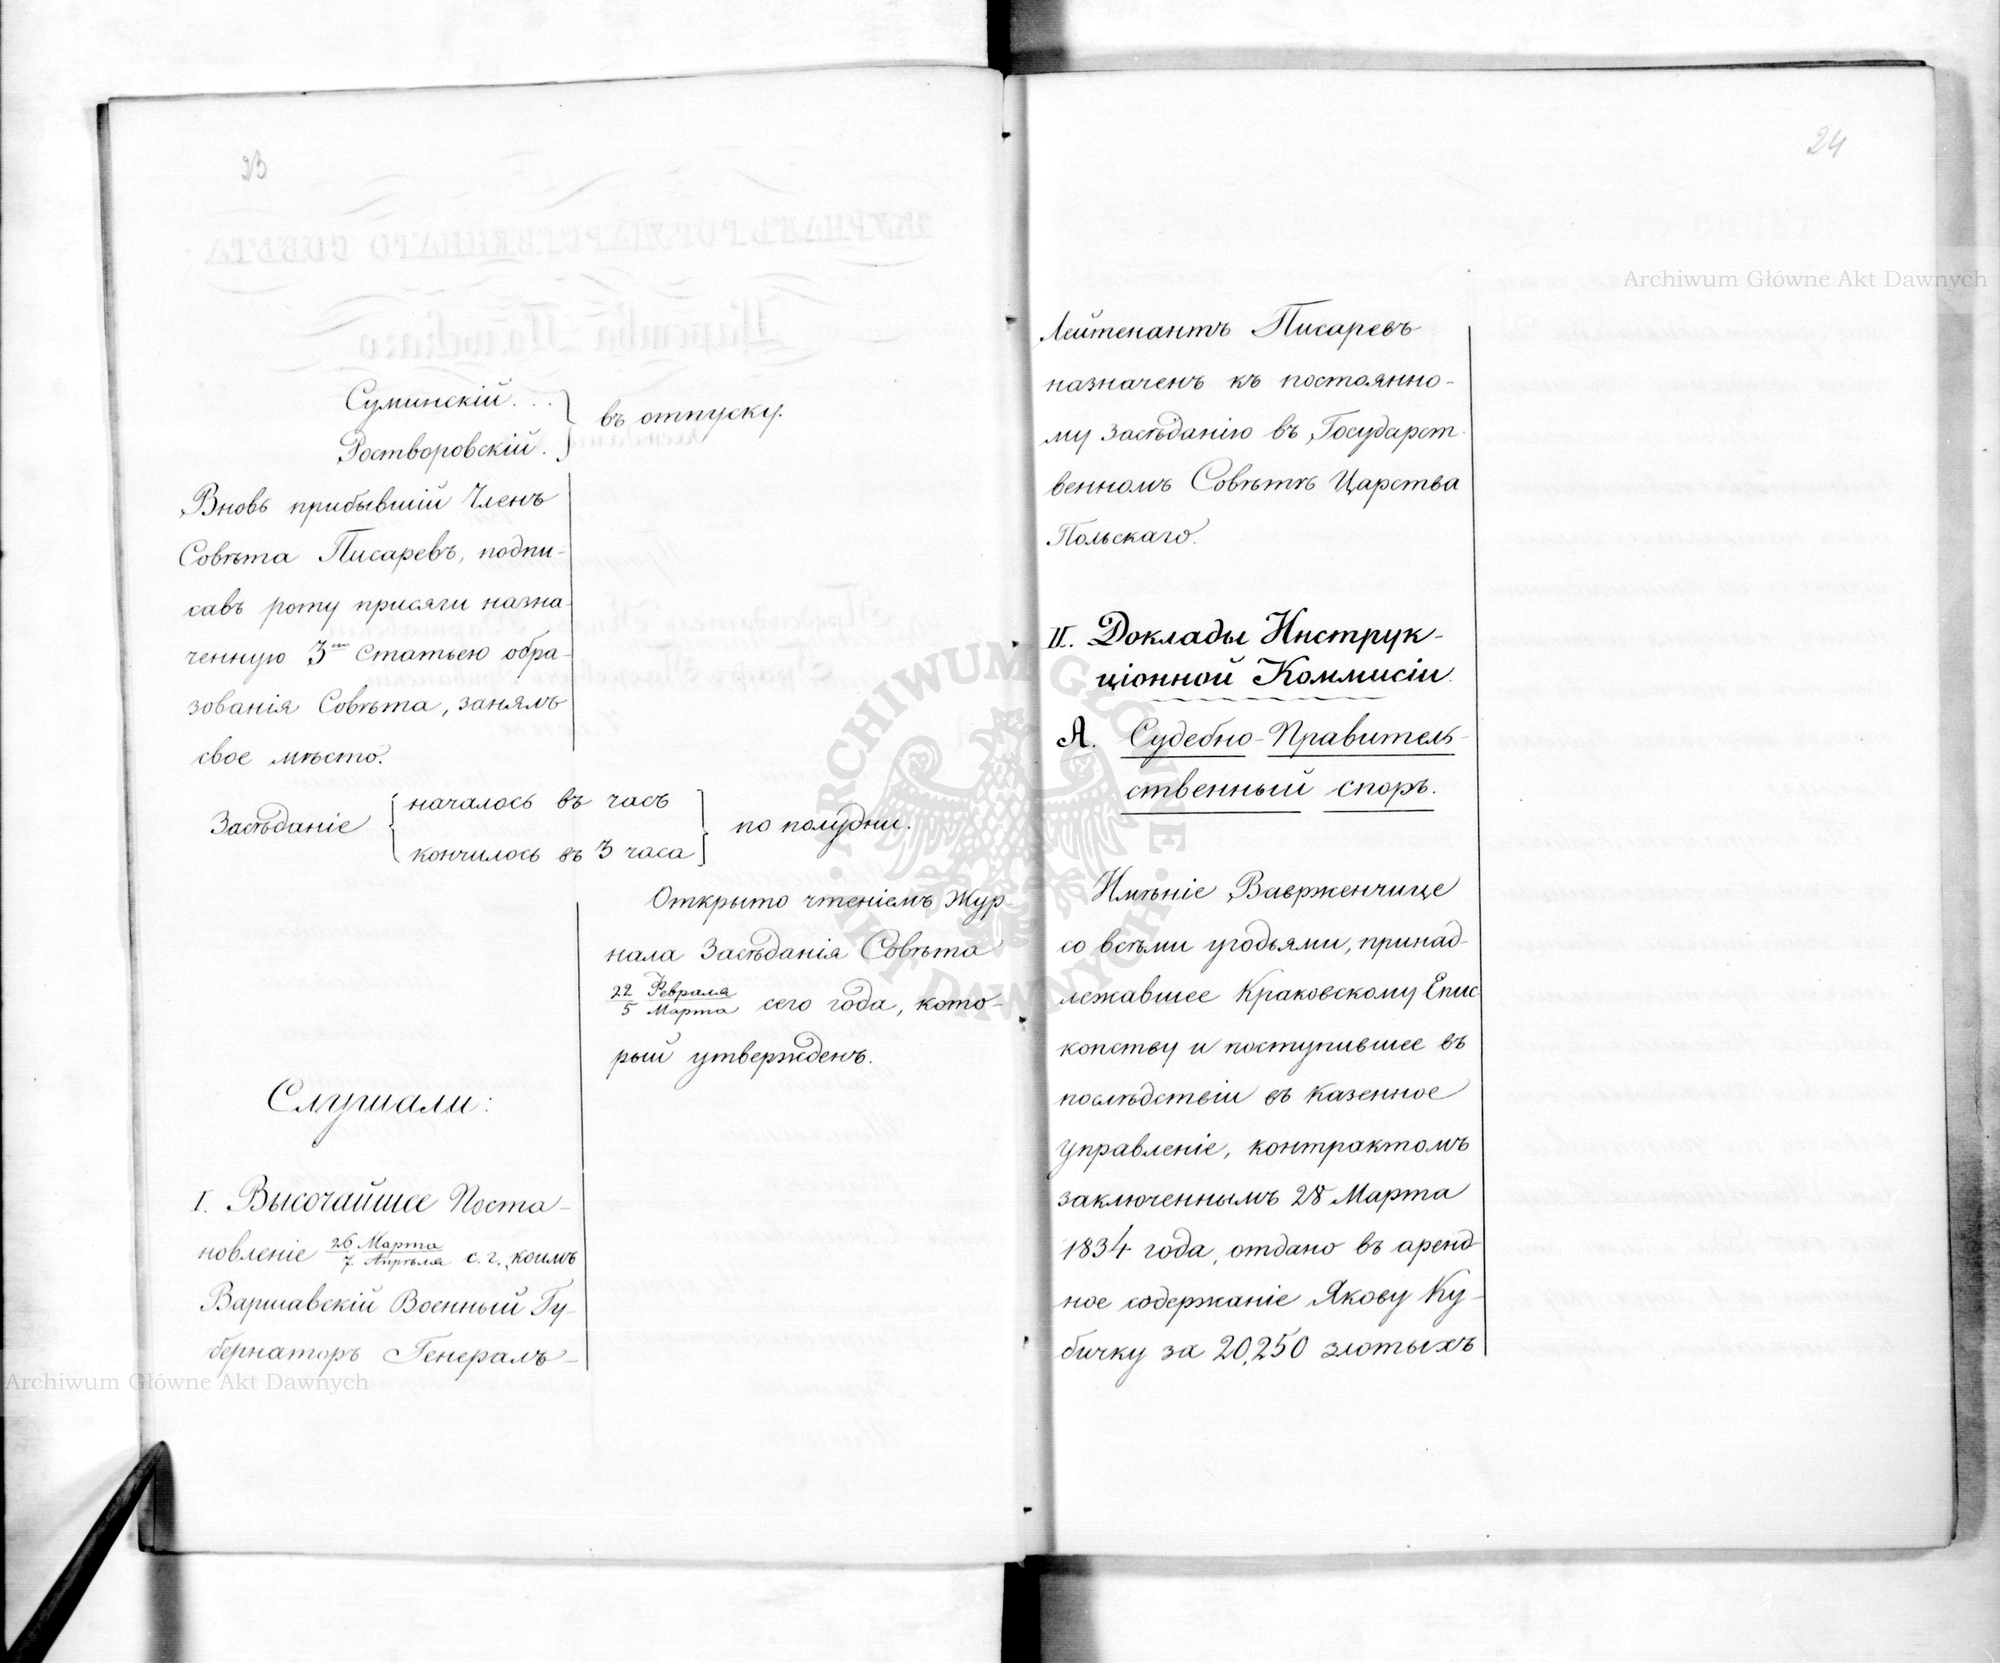 23
Суминскій. . .
Ростворовскій.
въ отпуску.
Вновь прибывшій Членъ
Совѣта Писаревъ, подпи-
савъ роту присяги назна-
ченную 3ею статьею обра-
зованія Совѣта, занялъ
свое мѣсто.
Засѣданіе
началось въ часъ
кончилось въ 3 часа
по полудни.
Открыто чтеніемъ Жур-
нала Засѣданія Совѣта
22 Февраля / 5 Марта сего года, кото-
рый утвержденъ.
Слушали:
I. Высочайшее Поста-
новленіе 26 Марта / 7 Апрѣля с. г., коимъ
Варшавскій Военный Гу-
бернаторъ Генералъ-
24
Лейтенантъ Писаревъ
назначенъ къ постоянно-
му засѣданію въ Государст-
венномъ Совѣтѣ Царства
Польскаго.
II. Доклады Инструк-
ціонной Коммисіи.
А. Судебно-Правитель-
ственный споръ.
Имѣніе Вавржeнчице
со всѣми угодьями, принад-
лежавшее Краковскому Епис-
копству и поступившее въ
послѣдствіи въ казенное
управленіе, контрактомъ
заключеннымъ 28 Марта
1834 года, отдано въ аренд-
ное содержаніе Якову Ку-
бичку за 20,250 злотыхъ
Archiwum Główne Akt Dawnych
Archiwum Główne Akt Dawnych
ARCHIWUM GŁÓWNE AKT DAWNYCH